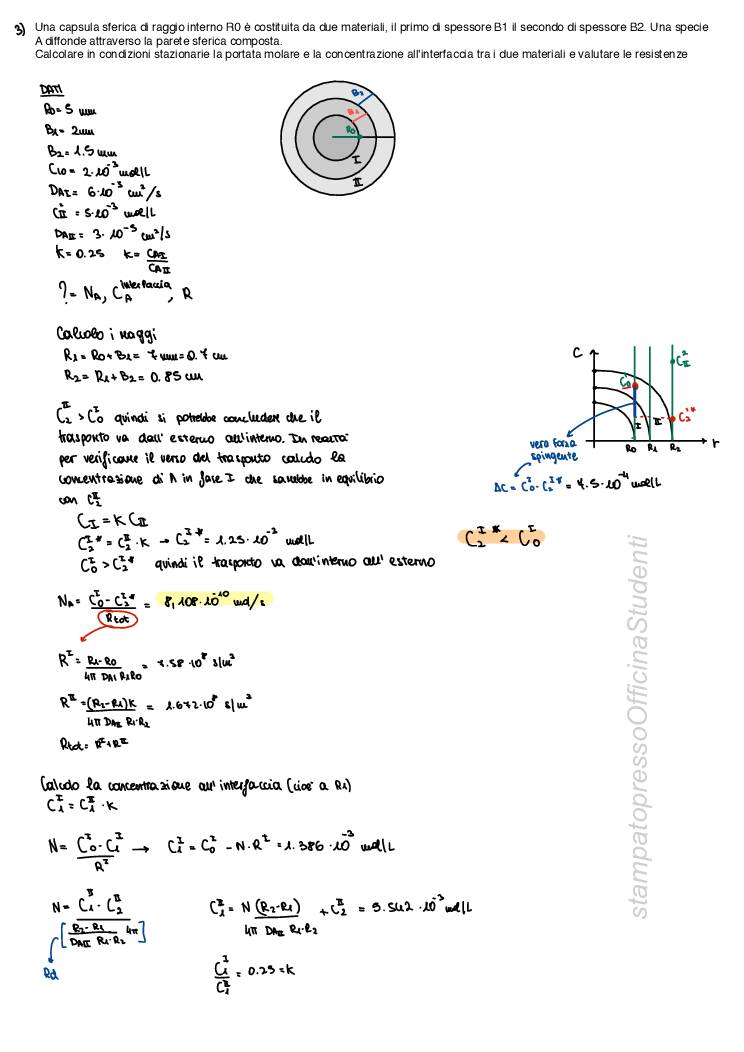 3) Una capsula sferica di raggio interno R0 è costituita da due materiali, il primo di spessore B1 il secondo di spessore B2. Una specie
A diffonde attraverso la parete sferica composta.
Calcolare in condizioni stazionarie la portata molare e la concentrazione all'interfaccia tra i due materiali e valutare le resistenze
DATI
R0 = 5 mm
B1 = 2mm
B2 = 1.5 mm
C10 = 2·10⁻³ mol/L
DAI = 6·10⁻⁵ cm²/s
= 5·10⁻³ mol/L
DAII = 3·10⁻⁵ cm²/s
K = 0.25 K = CAI/CAII
? = NA, CA interfaccia, R
B2
B1
R0
I
II
Calcolo i raggi
R1 = R0 + B1 = 7 mm = 0.7 cm
R2 = R1 + B2 = 0.85 cm
C2^II > C0^I quindi si potrebbe concludere che il
trasporto va dall' esterno all'interno. In realtà
per verificare il verso del trasporto calcolo la
concentrazione di A in fase I che sarebbe in equilibrio
con C2^II
CI = K CII
C2^I* = C2^II · K → C2^I* = 1.25·10⁻³ mol/L
C0^I > C2^I* quindi il trasporto va dall'interno all' esterno
C2^I* < C0^I
C
I
II
C2^I*
R0 R1 R2 r
vera forza
spingente
ΔC = C0^I - C2^I* = 7.5·10⁻⁴ mol/L
NA = (C0^I - C2^I*)/Rtot = 8,108·10⁻¹⁰ mol/s
R^I = (R1-R0)/(4π DAI R1R0) = 7.58·10⁸ s/m³
R^II = (R2-R1)K/(4π DAII R1·R2) = 1.672·10⁸ s/m³
Rtot = R^I + R^II
Calcolo la concentrazione all' interfaccia (cioè a R1)
C1^I = C1^II · K
N = (C0^I - C1^I)/R^I → C1^I = C0^I - N·R^I = 1.386·10⁻³ mol/L
N = (C1^II - C2^II)/[(R2-R1)/(DAII R1·R2 4π)]
C1^II = N (R2-R1)/(4π DAII R1·R2) + C2^II = 5.542·10⁻³ mol/L
C1^I/C1^II = 0.25 = K
stampatopressoOfficinaStudenti